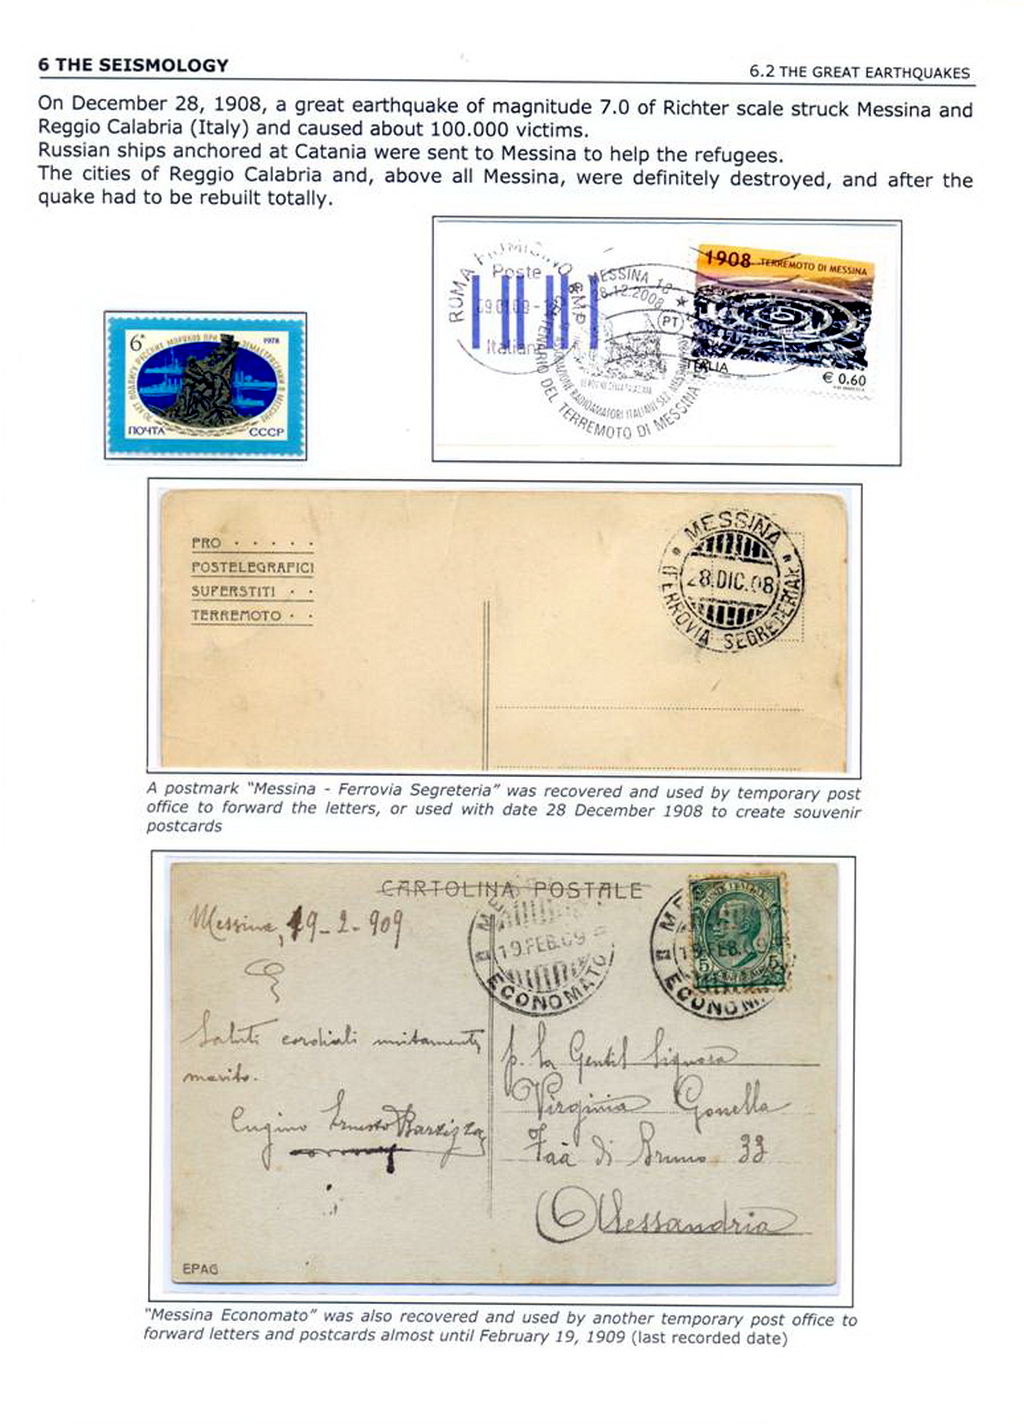 6 THE SEISMOLOGY
6.2 THE GREAT EARTHQUAKES
On December 28, 1908, a great earthquake of magnitude 7.0 of Richter scale struck Messina and
Reggio Calabria (Italy) and caused about 100.000 victims.
Russian ships anchored at Catania were sent to Messina to help the refugees.
The cities of Reggio Calabria and, above all Messina, were definitely destroyed, and after the
quake had to be rebuilt totally.
6к
1978
70 ЛЕТ ПОДВИГУ РУССКИХ МОРЯКОВ ПРИ ЗЕМЛЕТРЯСЕНИИ В МЕССИНЕ
ПОЧТА СССР
ROMA FIUMICINO
Poste
Italiane
MESSINA
28.12.2008
PT
DEL TERREMOTO DI MESSINA
1908 TERREMOTO DI MESSINA
ITALIA
€ 0.60
PRO . . . . .
POSTELEGRAFICI
SUPERSTITI . .
TERREMOTO . .
MESSINA
28.DIC.08
FERROVIA SEGRETERIA
A postmark "Messina - Ferrovia Segreteria" was recovered and used by temporary post
office to forward the letters, or used with date 28 December 1908 to create souvenir
postcards
CARTOLINA POSTALE
Messina, 19-2-909
19.FEB.09
ECONOMATO
19.FEB.09
ECONOM
5 5
Saluti cordiali unitamente
marito.
Cugino Ernesto Barzizza
p. la Gentil Signora
Virginia Gonella
Faà di Bruno 33
Alessandria
EPAG
"Messina Economato" was also recovered and used by another temporary post office to
forward letters and postcards almost until February 19, 1909 (last recorded date)